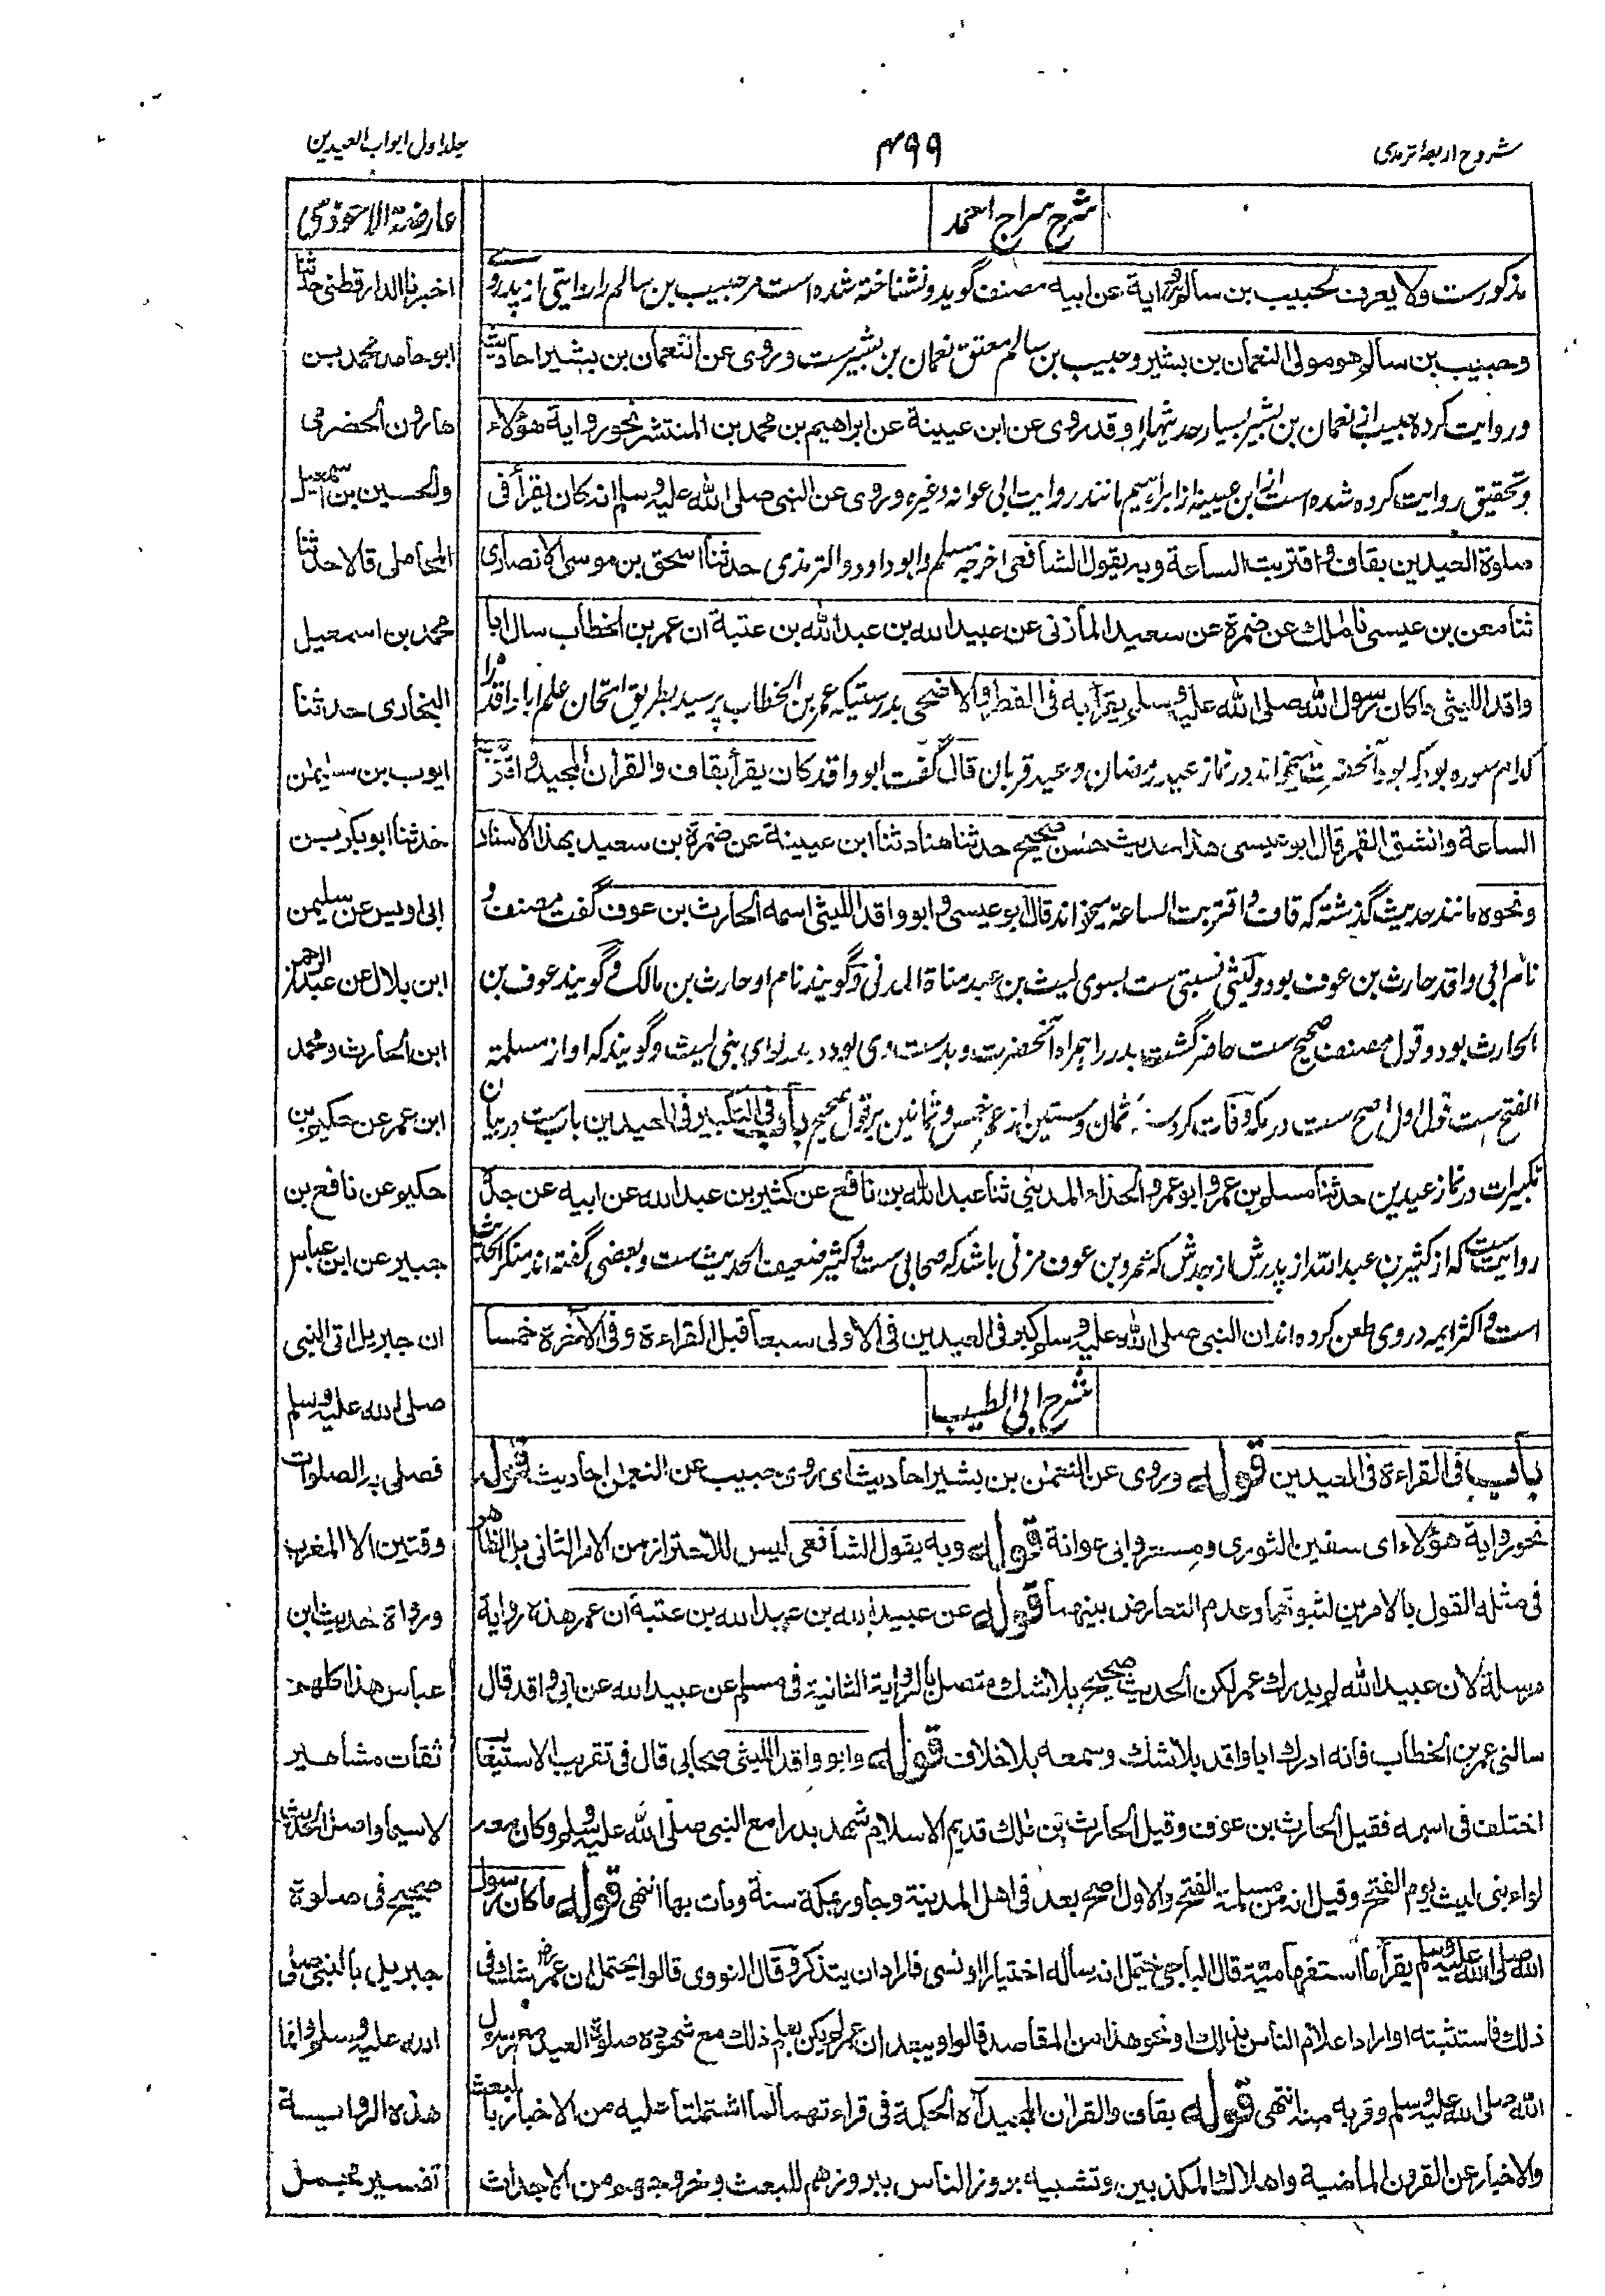 شروح اربعهٔ ترمذی
۴۹۹
جلد اول ابواب العیدین
شرح سراج احمد
مذکورست ولا یعرف لحبیب بن سالم روایة عن ابیه مصنف گوید ونشناخته شده است مر حبیب بن سالم را روایتی از پدر وے
وحبیب بن سالم هو مولی النعمان بن بشیر وحبیب بن سالم معتق نعمان بن بشیرست وروی عن النعمان بن بشیر احادیث
وروایت کرده حبیب از نعمان بن بشیر بسیار حدیثها را وقد روی عن ابن عیینة عن ابراهیم بن محمد بن المنتشر نحو روایة هؤلاء
وبتحقیق روایت کرده شده است از ابن عیینه از ابراهیم مانند روایت ابی عوانه وغیره وروی عن النبی صلی الله علیه وسلم انه کان یقرأ فی
صلوة العیدین بقاف واقتربت الساعة وبه یقول الشافعی اخرجه مسلم وابو داود والترمذی حدثنا اسحق بن موسی الانصاری
ثنا معن بن عیسی نا ملك عن ضمرة عن سعید المازنی عن عبید الله بن عبد الله بن عتبة ان عمر بن الخطاب سال ابا
واقد اللیثی ما کان رسول الله صلی الله علیه وسلم یقرأ به فی الفطر والاضحی بدرستیکه عمر بن الخطاب پرسید بطریق امتحان علم ابا واقد را
کدام سوره بود که بود آنحضرت میخواند در نماز عید رمضان وعید قربان قال گفت ابو واقد کان یقرأ بقاف والقرآن المجید واقتربت
الساعة وانشق القمر قال ابو عیسی هذا حدیث حسن صحیح حدثنا هناد ثنا ابن عیینة عن ضمرة بن سعید بهذا الاسناد
ونحوه مانند حدیث گذشته که قاف واقتربت الساعة میخواند قال ابو عیسی وابو واقد اللیثی اسمه الحارث بن عوف گفت مصنف و
نام ابی واقد حارث بن عوف بود ولیثی نسبتی ست بسوی لیث بن عبد مناة المدنی وگویند نام او حارث بن مالک وگویند عوف بن
الحارث بود وقول مصنف صحیح ست حاضر گشت بدر را همراه آنحضرت وبدست وی بود لوای بنی لیث وگویند که او از مسلمة
الفتح ست قول اول اصح ست در مکه وفات کرد سنه ثمان وستین از عمر خمس وثمانین بر قول صحیح باب فی التکبیر فی العیدین باب ست در بیان
تکبیرات در نماز عیدین حدثنا مسلم بن عمرو ابو عمرو الحذاء المدینی ثنا عبد الله بن نافع عن کثیر بن عبد الله عن ابیه عن جده
روایت ست که از کثیر بن عبد الله از پدرش از جدش که عمرو بن عوف مزنی باشد که صحابی ست وکثیر ضعیف الحدیث ست وبعضی گفته اند منکر الحدیث
است واکثر ایمه در وی طعن کرده اند ان النبی صلی الله علیه وسلم کبر فی العیدین فی الاولی سبعا قبل القراءة وفی الآخرة خمسا
شرح ابی الطیب
باب فی القراءة فی العیدین قوله وروی عن النعمن بن بشیر احادیث ای روی حبیب عن النعمن احادیث قوله
نحو روایة هؤلاء ای سفین الثوری ومسعر وابی عوانة قوله وبه یقول الشافعی لیس للاحتراز من الامر الثانی بل الظاهر
فی مثله القول بالامرین لثبوتهما وعدم التعارض بینهما قوله عن عبید الله بن عبد الله بن عتبة ان عمر هذه روایة
مرسلة لان عبید الله لم یدرك عمر لکن الحدیث صحیح بلا شك متصل بالروایة الثانیة فی مسلم عن عبید الله عن ابی واقد قال
سالنی عمر بن الخطاب فانه ادرك ابا واقد بلا شك وسمعه بلا خلاف قوله وابو واقد اللیثی صحابی قال فی تقریب الاستیعاب
اختلف فی اسمه فقیل الحارث بن عوف وقیل الحارث بن مالك قدیم الاسلام شهد بدرا مع النبی صلی الله علیه وسلم وکان معه
لواء بنی لیث یوم الفتح وقیل انه من مسلمة الفتح والاول اصح یعد فی اهل المدینة وجاور بمکة سنة ومات بها انتهی قوله ما کان رسول
الله صلی الله علیه وسلم یقرأ ما استفهامیة قال الباجی یحتمل انه سأله اختبارا او نسی فاراد ان یتذکر وقال النووی قالوا یحتمل ان عمر شك فی
ذلك فاستثبته او اراد اعلام الناس بذلك او نحو هذا من المقاصد قالوا ویبعد ان عمر لم یکن یعلم ذلك مع شهوده صلوة العید مع رسول
الله صلی الله علیه وسلم وقربه منه انتهی قوله بقاف والقرآن المجید آه الحکمة فی قراءتهما لما اشتملتا علیه من الاخبار بالبعث
والاخبار عن القرون الماضیة واهلاك المکذبین وتشبیه بروز الناس ببروزهم للبعث وخروجهم من الاجداث
عارضة الاحوذی
اخبرنا الدارقطنی حدثنا
ابو حامد محمد بن
هارون الحضرمی
والحسین بن اسمعیل
المحاملی قالا حدثنا
محمد بن اسمعیل
البخاری حدثنا
ایوب بن سلیمن
حدثنا ابو بکر بن
ابی اویس عن سلیمن
ابن بلال عن عبد الرحمن
ابن الحارث ومحمد
ابن عمر عن حکیم بن
حکیم عن نافع بن
جبیر عن ابن عباس
ان جبریل اتی النبی
صلی الله علیه وسلم
فصلی به الصلوات
وقتین الا المغرب
ورواة حدیث ابن
عباس هذا کلهم
ثقات مشاهیر
لا سیما واصل الحدیث
صحیح فی صلوة
جبریل بالنبی صلی
الله علیه وسلم وانما
هذه الروایة
تفسیر مجمل